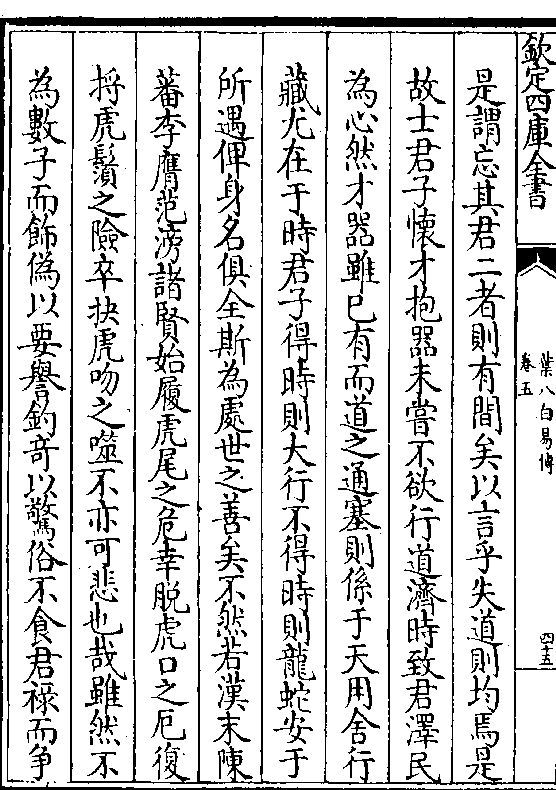 欽定四庫全書
葉八白易傳
卷五
四十五
是謂忘其君二者則有間矣以言乎失道則均焉是
故士君子懷才抱器未嘗不欲行道濟時致君澤民
為心然才器雖已有而道之通塞則係于天用舍行
藏尤在于時君子得時則大行不得時則龍蛇安于
所遇俾身名俱全斯為處世之善矣不然若漢末陳
蕃李膺范滂諸賢始履虎尾之危幸脫虎口之厄復
捋虎鬚之險卒抉虎吻之噬不亦可悲也哉雖然不
為數子而飾偽以要譽釣奇以驚俗不食君祿而争